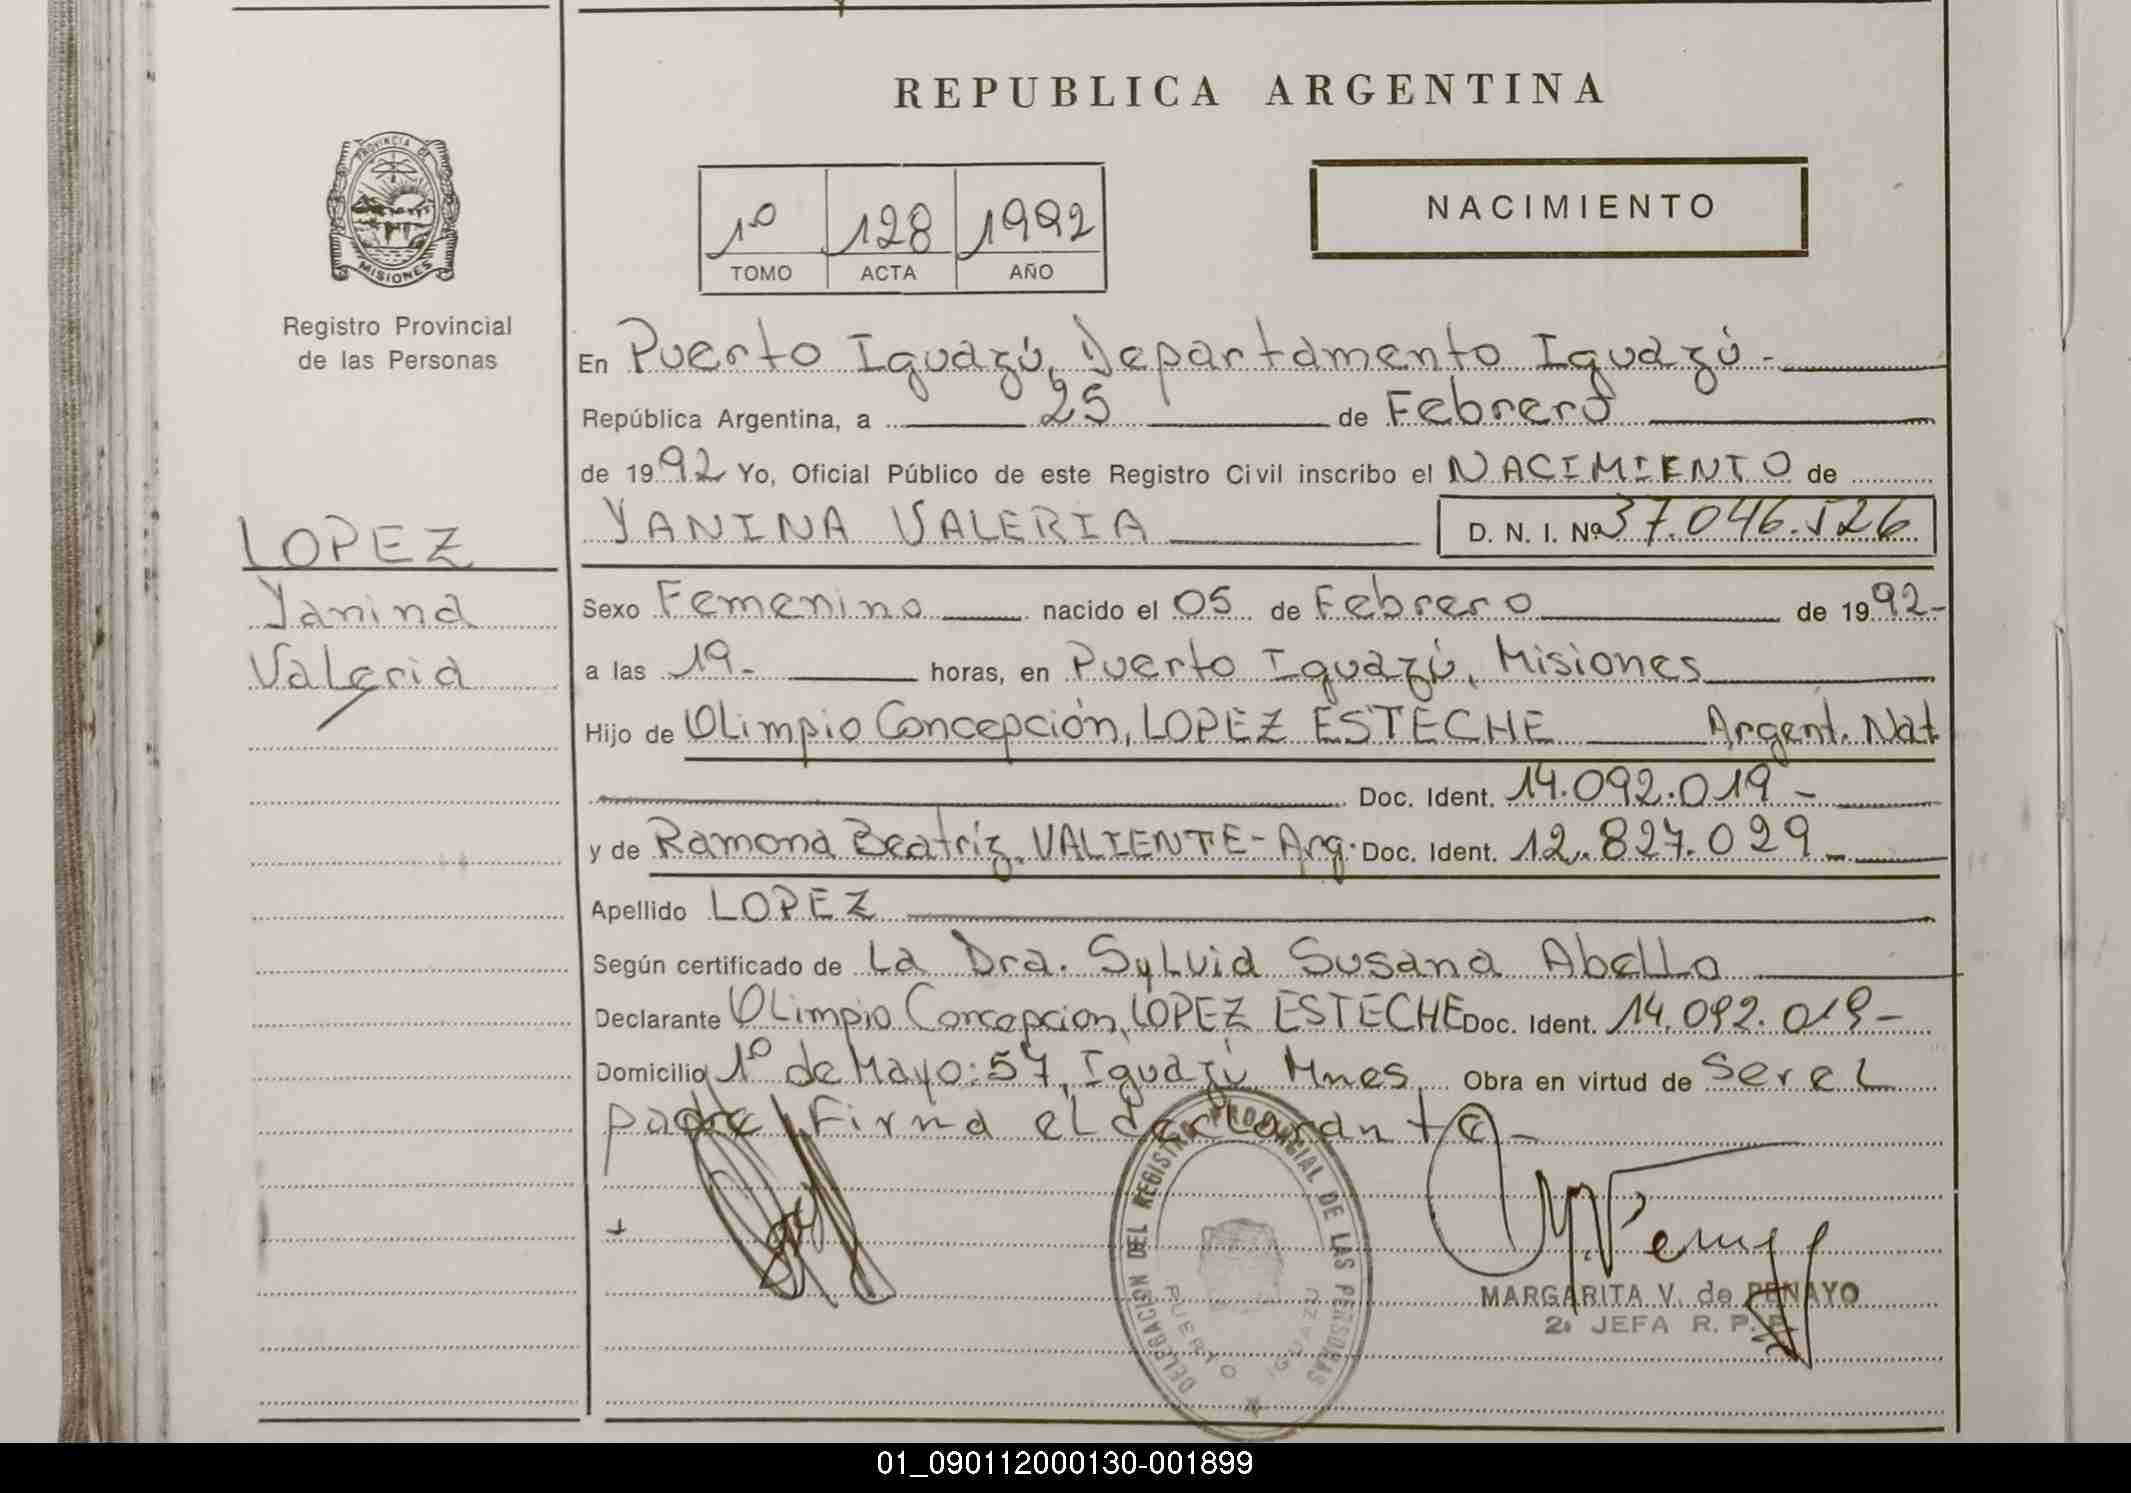 REPUBLICA ARGENTINA
PROVINCIA DE
MISIONES
1º 128 1992
TOMO ACTA AÑO
NACIMIENTO
Registro Provincial
de las Personas
En Puerto Iguazú, Departamento Iguazú.-
República Argentina, a 25 de Febrero
de 1992 Yo, Oficial Público de este Registro Civil inscribo el NACIMIENTO de
LOPEZ
Yanina
Valeria
YANINA VALERIA D. N. I. Nº 37.046.526
Sexo Femenino nacido el 05 de Febrero de 1992-
a las 19.- horas, en Puerto Iguazú, Misiones
Hijo de Olimpio Concepción, LOPEZ ESTECHE Argent. Nat
Doc. Ident. 14.092.019-
y de Ramona Beatriz. VALIENTE- Arg. Doc. Ident. 12.827.029-
Apellido LOPEZ
Según certificado de La Dra. Sylvia Susana Abello
Declarante Olimpio Concepcion, LOPEZ ESTECHE Doc. Ident. 14.092.019-
Domicilio 1º de Mayo: 57, Iguazú Mnes. Obra en virtud de ser el
padre firma el declarante-
DELEGACION DEL REGISTRO PROVINCIAL DE LAS PERSONAS
PUERTO IGUAZU
MARGARITA V. de PENAYO
2ª JEFA R. P. P.
01_090112000130-001899